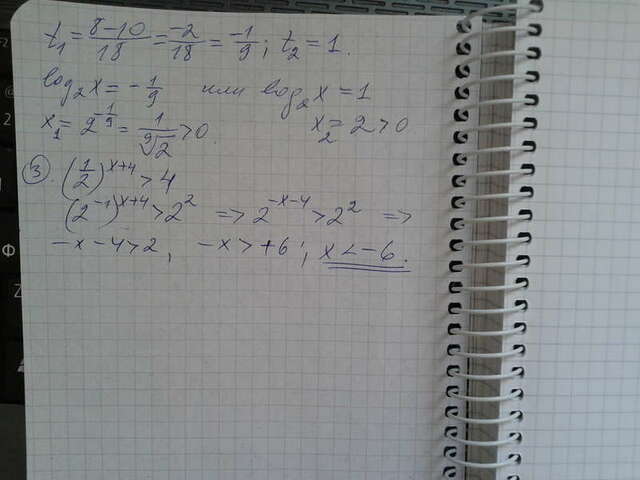 t₁ = (8-10)/18 = -2/18 = -1/9; t₂ = 1.
log₂x = -1/9 или log₂x = 1
x₁ = 2^(-1/9) = 1/⁹√2 > 0. x₂ = 2 > 0
③. (1/2)^(x+4) > 4
(2⁻¹)^(x+4) > 2² => 2^(-x-4) > 2² =>
-x-4>2, -x>+6; x<-6.